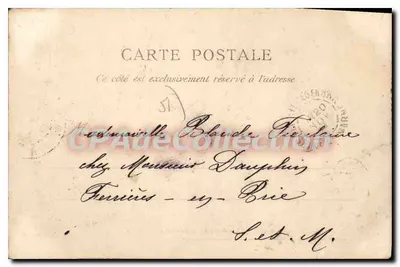 CARTE POSTALE
Ce côté est exclusivement réservé à l'adresse
51
Mademoiselle Blanche
chez Monsieur Dauphin
Ferrières-en-Brie
S. et M.